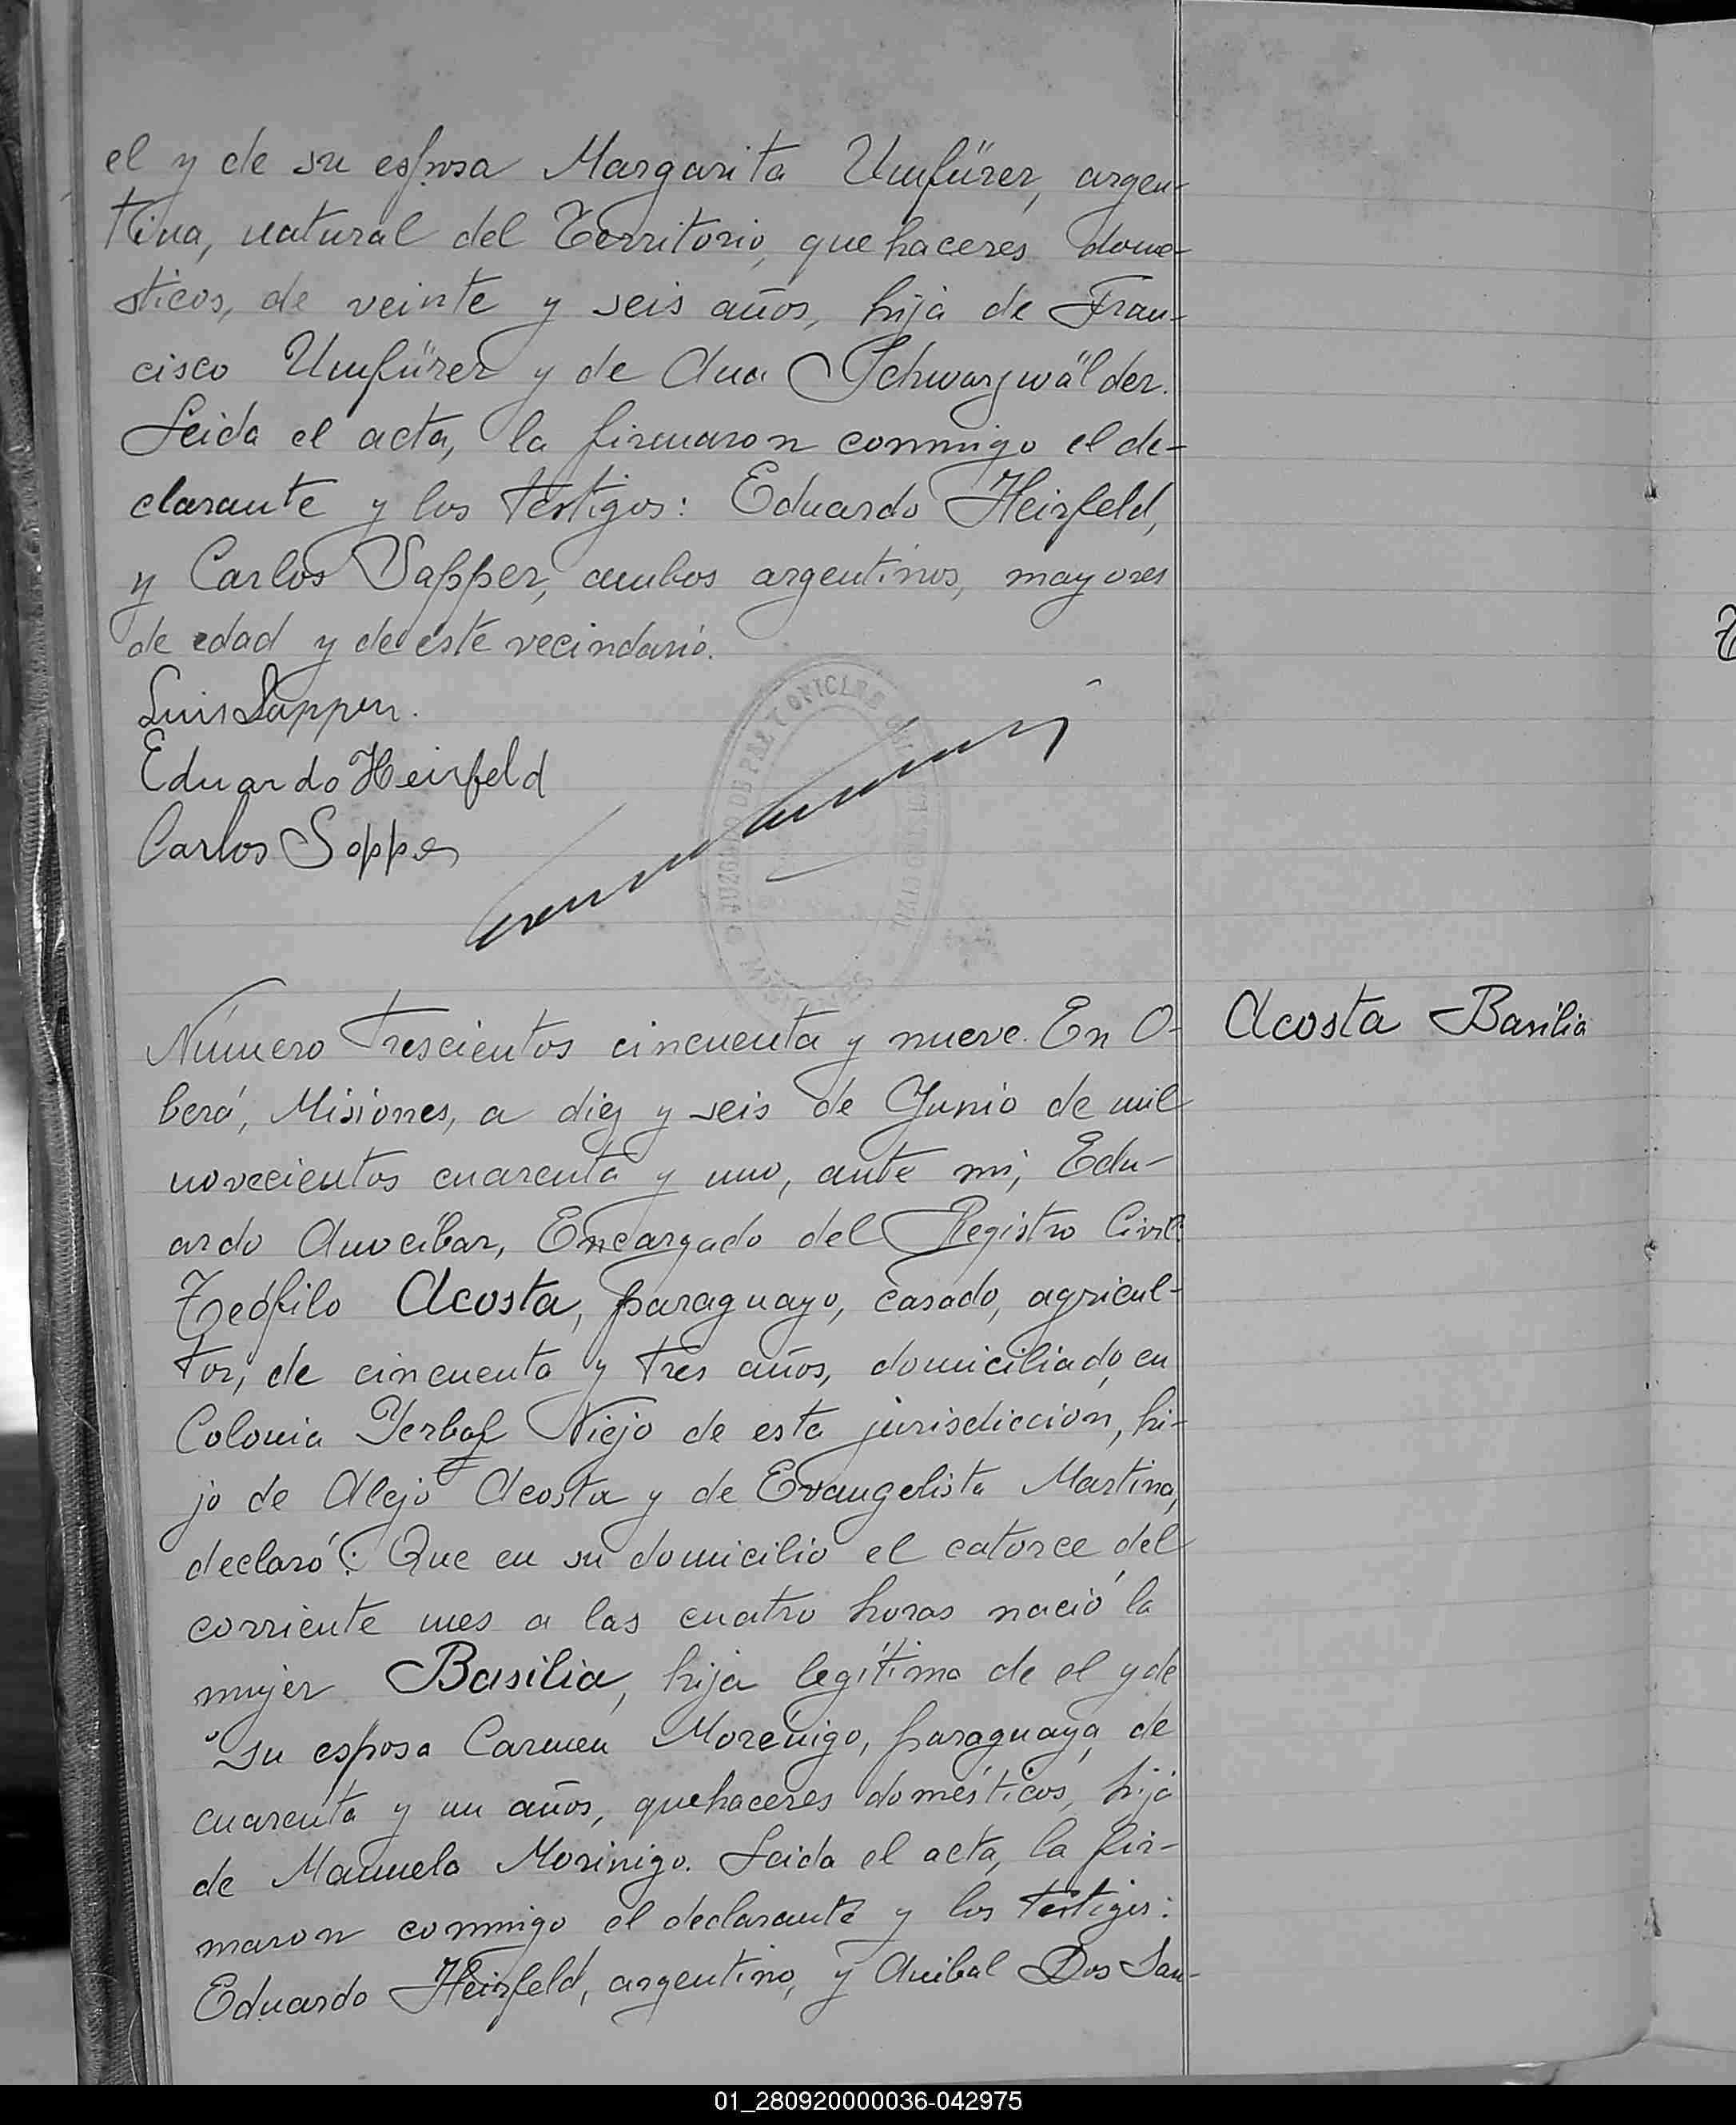 el y de su esposa Margarita Umfürer, argen-
tina, natural del Territorio, quehaceres dome-
sticos, de veinte y seis años, hija de Fran-
cisco Umfürer y de Ana Schwarzwälder.
Leida el acta, la firmaron conmigo el de-
clarante y los testigos: Eduardo Heirfeld,
y Carlos Sapper, ambos argentinos, mayores
de edad y de este vecindario.
Luis Sapper.
Eduardo Heirfeld
Carlos Sapper
JUZGADO DE PAZ Y
MISIONES
Número trescientos cincuenta y nueve. En O-
berá, Misiones, a diez y seis de Junio de mil
novecientos cuarenta y uno, ante mi, Edu-
ardo Amocibar, Encargado del Registro Civil
Teófilo Acosta, paraguayo, casado, agricul-
tor, de cincuenta y tres años, domiciliado en
Colonia Yerbal Viejo de esta jurisdiccion, hi-
jo de Alejo Acosta y de Evangelista Martina,
declaró: Que en su domicilio el catorce del
corriente mes a las cuatro horas nació la
mujer Basilia, hija legítima de el y de
su esposa Carmen Morénigo, paraguaya, de
cuarenta y un años, quehaceres domésticos, hija
de Manuela Morinigo. Leida el acta, la fir-
maron conmigo el declarante y los testigos:
Eduardo Heirfeld, argentino, y Anibal Dos San-
Acosta Basilia
01_280920000036-042975